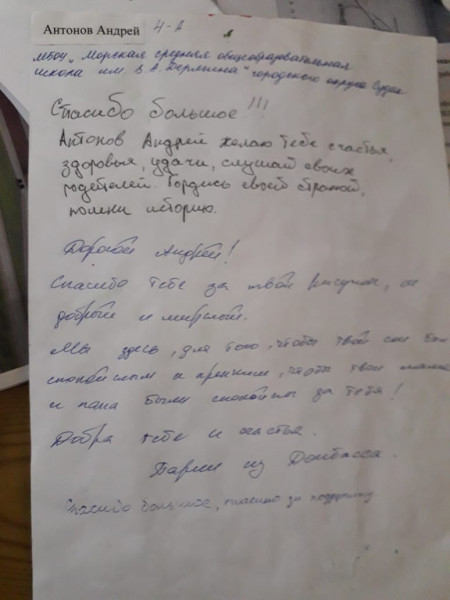 Антонов Андрей 4-А
МБОУ "Морская средняя общеобразовательная
школа им. В. А. Дерягина" городского округа Судак
Спасибо большое!!!
Антонов Андрей желаю тебе счастья,
здоровья, удачи, слушай своих
родителей. Гордись своей страной,
помни историю.
Дорогой Андрей!
Спасибо тебе за твой рисунок, он
добрый и мирный.
Мы здесь, для того, чтобы твой сон был
спокойным и крепким, чтобы твои мама
и папа были спокойны за тебя!
Добра тебе и счастья.
Парни из Донбасса.
Спасибо большое, за поддержку